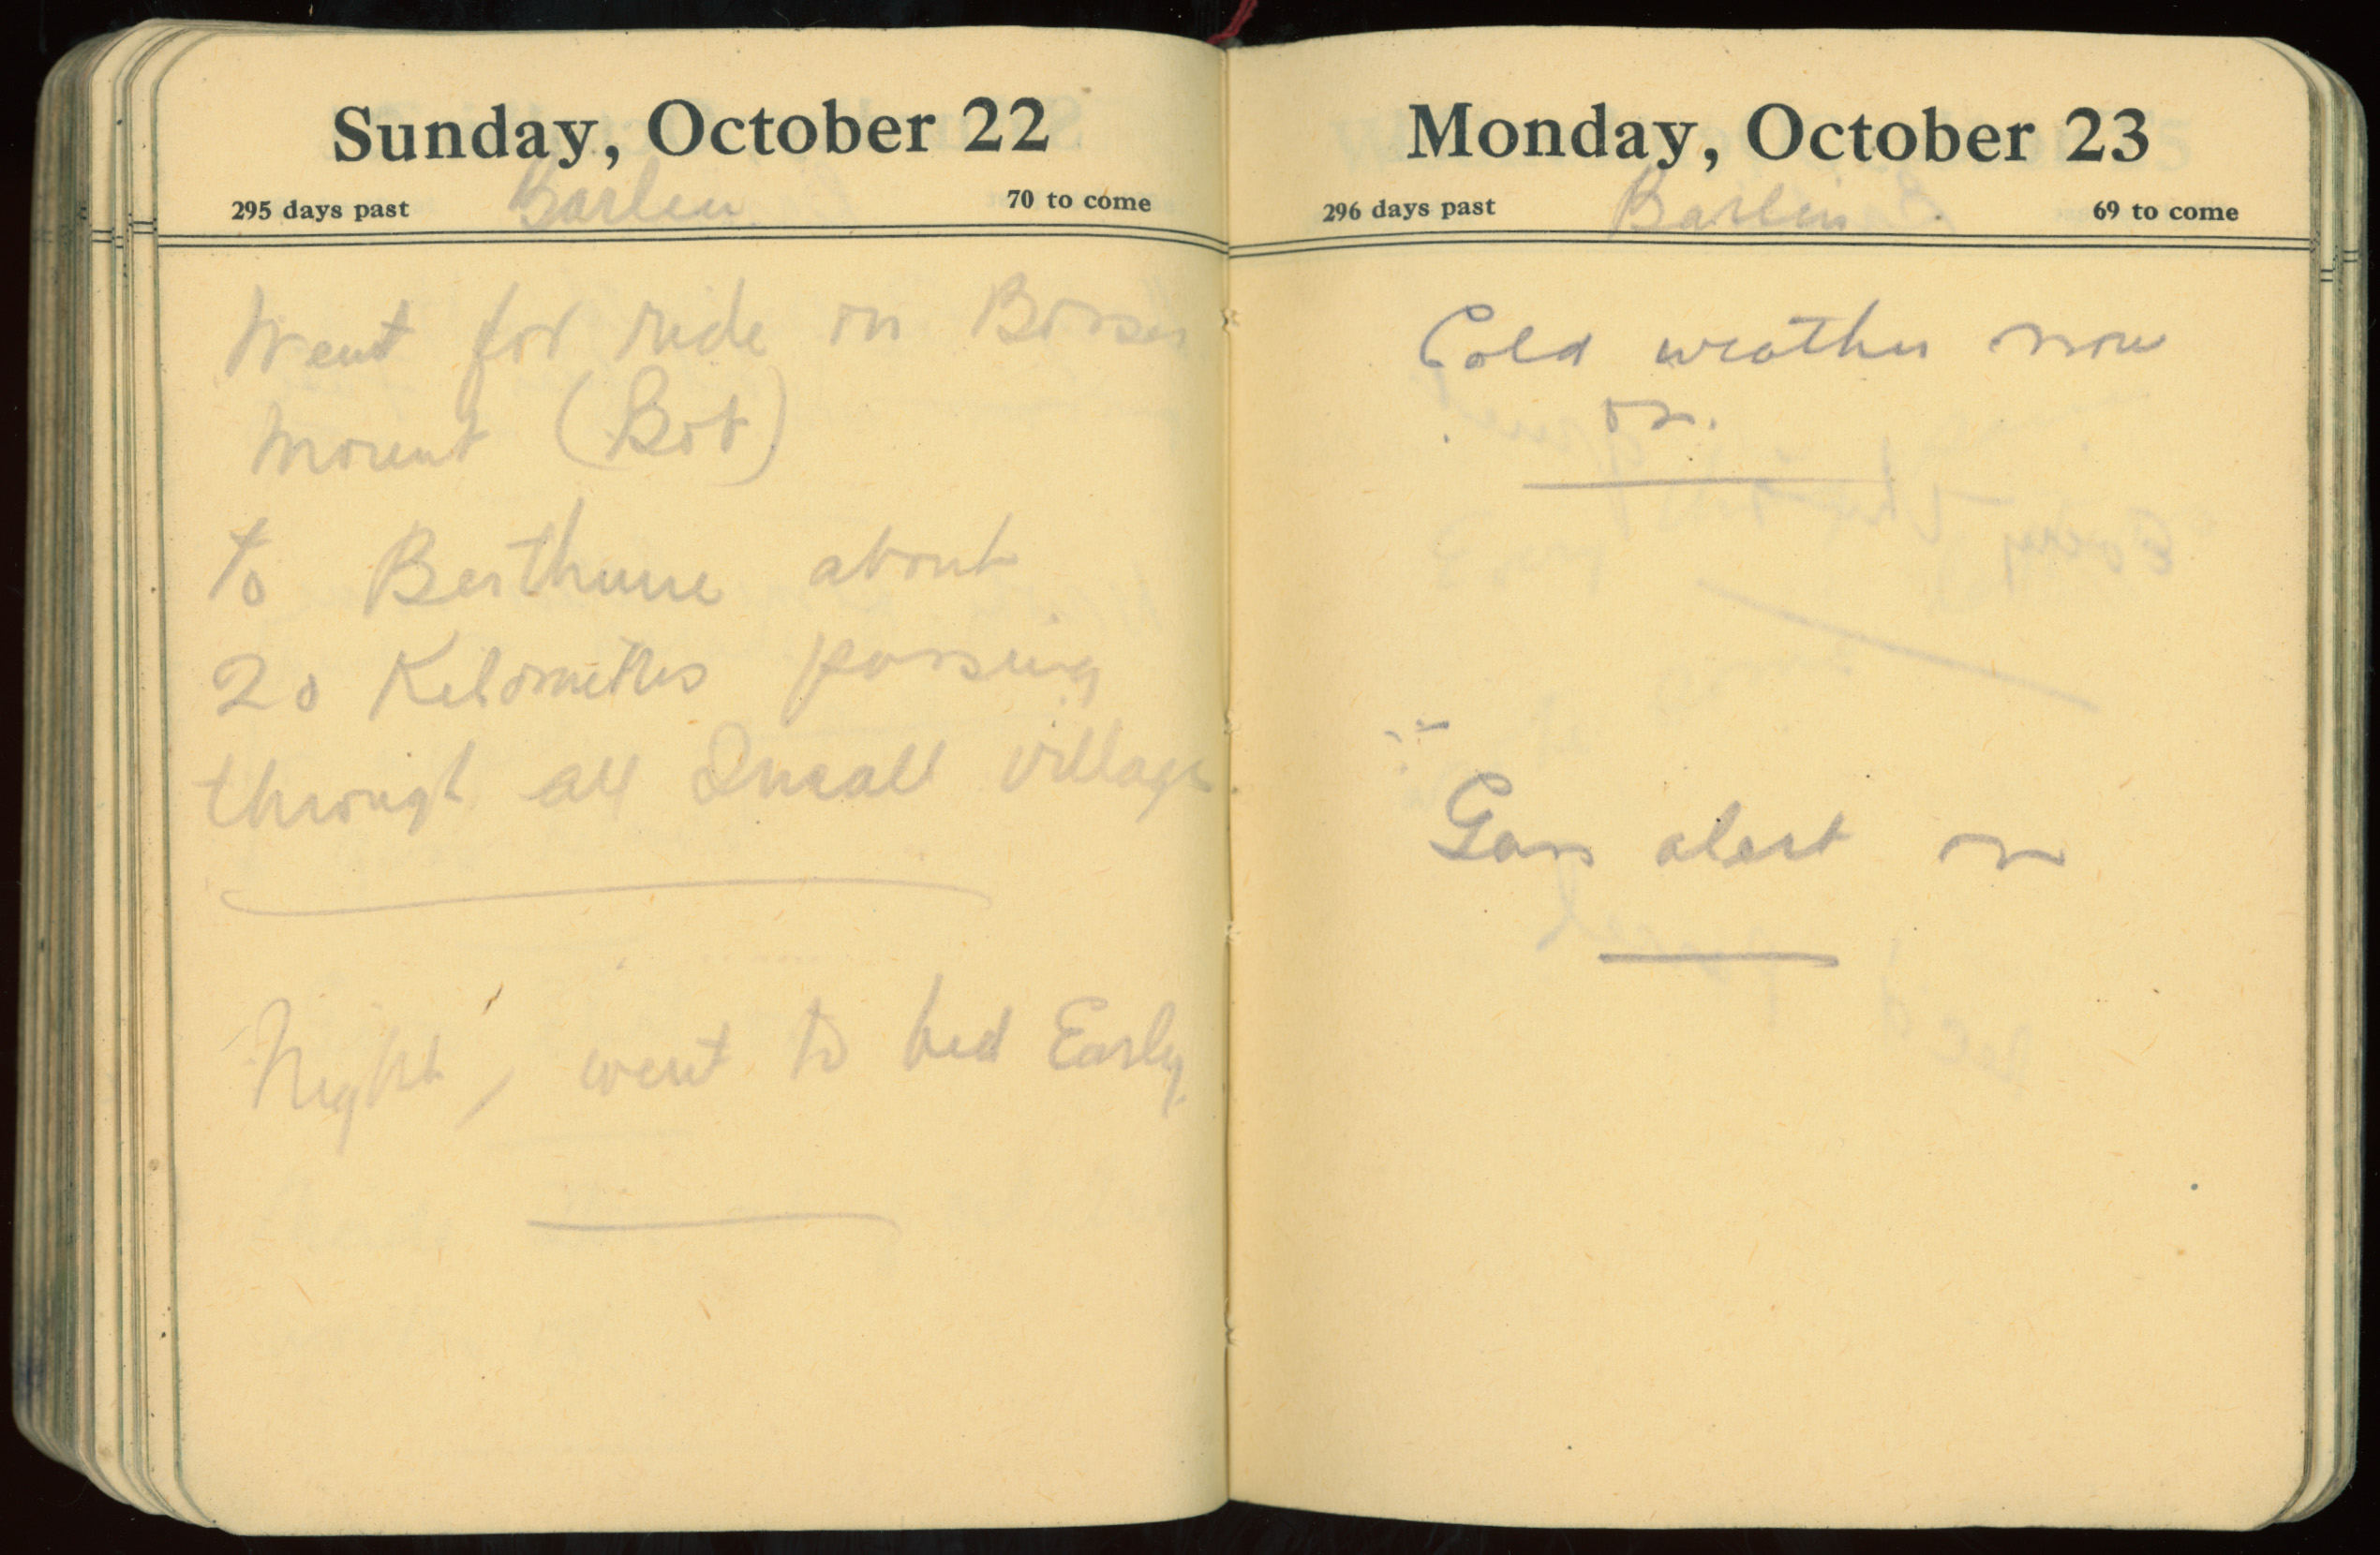 Sunday, October 22
295 days past Barlin 70 to come
Went for ride on Bosses
mount (Bob)
to Besthune about
20 Kilometres passing
through all Small village
Night, went to bed Early
Monday, October 23
296 days past Barlin 69 to come
Cold weather now
on.
Gass alert on